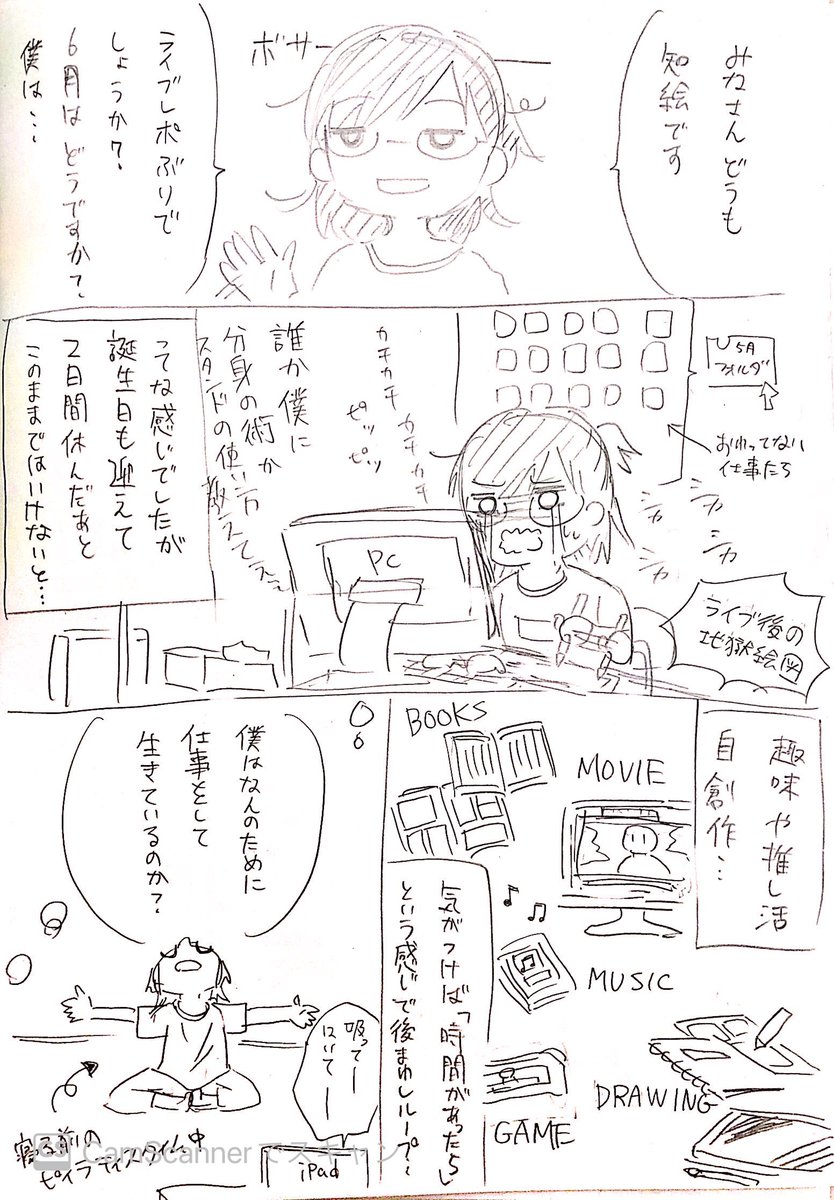 みなさんどうも
知絵です
ボサー
ライブレポぶりで
しょうか?
6月はどうですか?
僕は…
5月
フォルダ
おわってない
仕事たち
シカ
シカ
シカ
シカ
カチカチ
カチカチ
ピッ
ピッ
PC
ライブ後の
地獄絵図
誰か僕に
分身の術か
スタンドの使い方
教えてえ〜
こてな感じでしたが
誕生日も迎えて
2日間休んだあと
このままではいけないと…
趣味や推し活
自創作…
BOOKS
MOVIE
MUSIC
DRAWING
GAME
気がつけば「時間があったら」
という感じで後まわしループ…
僕はなんのために
仕事をして
生きているのか?
吸ってー
はいてー
iPad
寝る前の
ピイラティスタイム中
CamScanner でスキャン